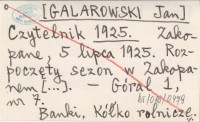 [GALAROWSKI Jan]
Czytelnik 1925. Zako-
pane, 5 lipca 1925. Roz-
poczęty sezon w Zakopa-
nem [...]. – Góral 1,
nr 7.
Banki, Kółko rolnicze.